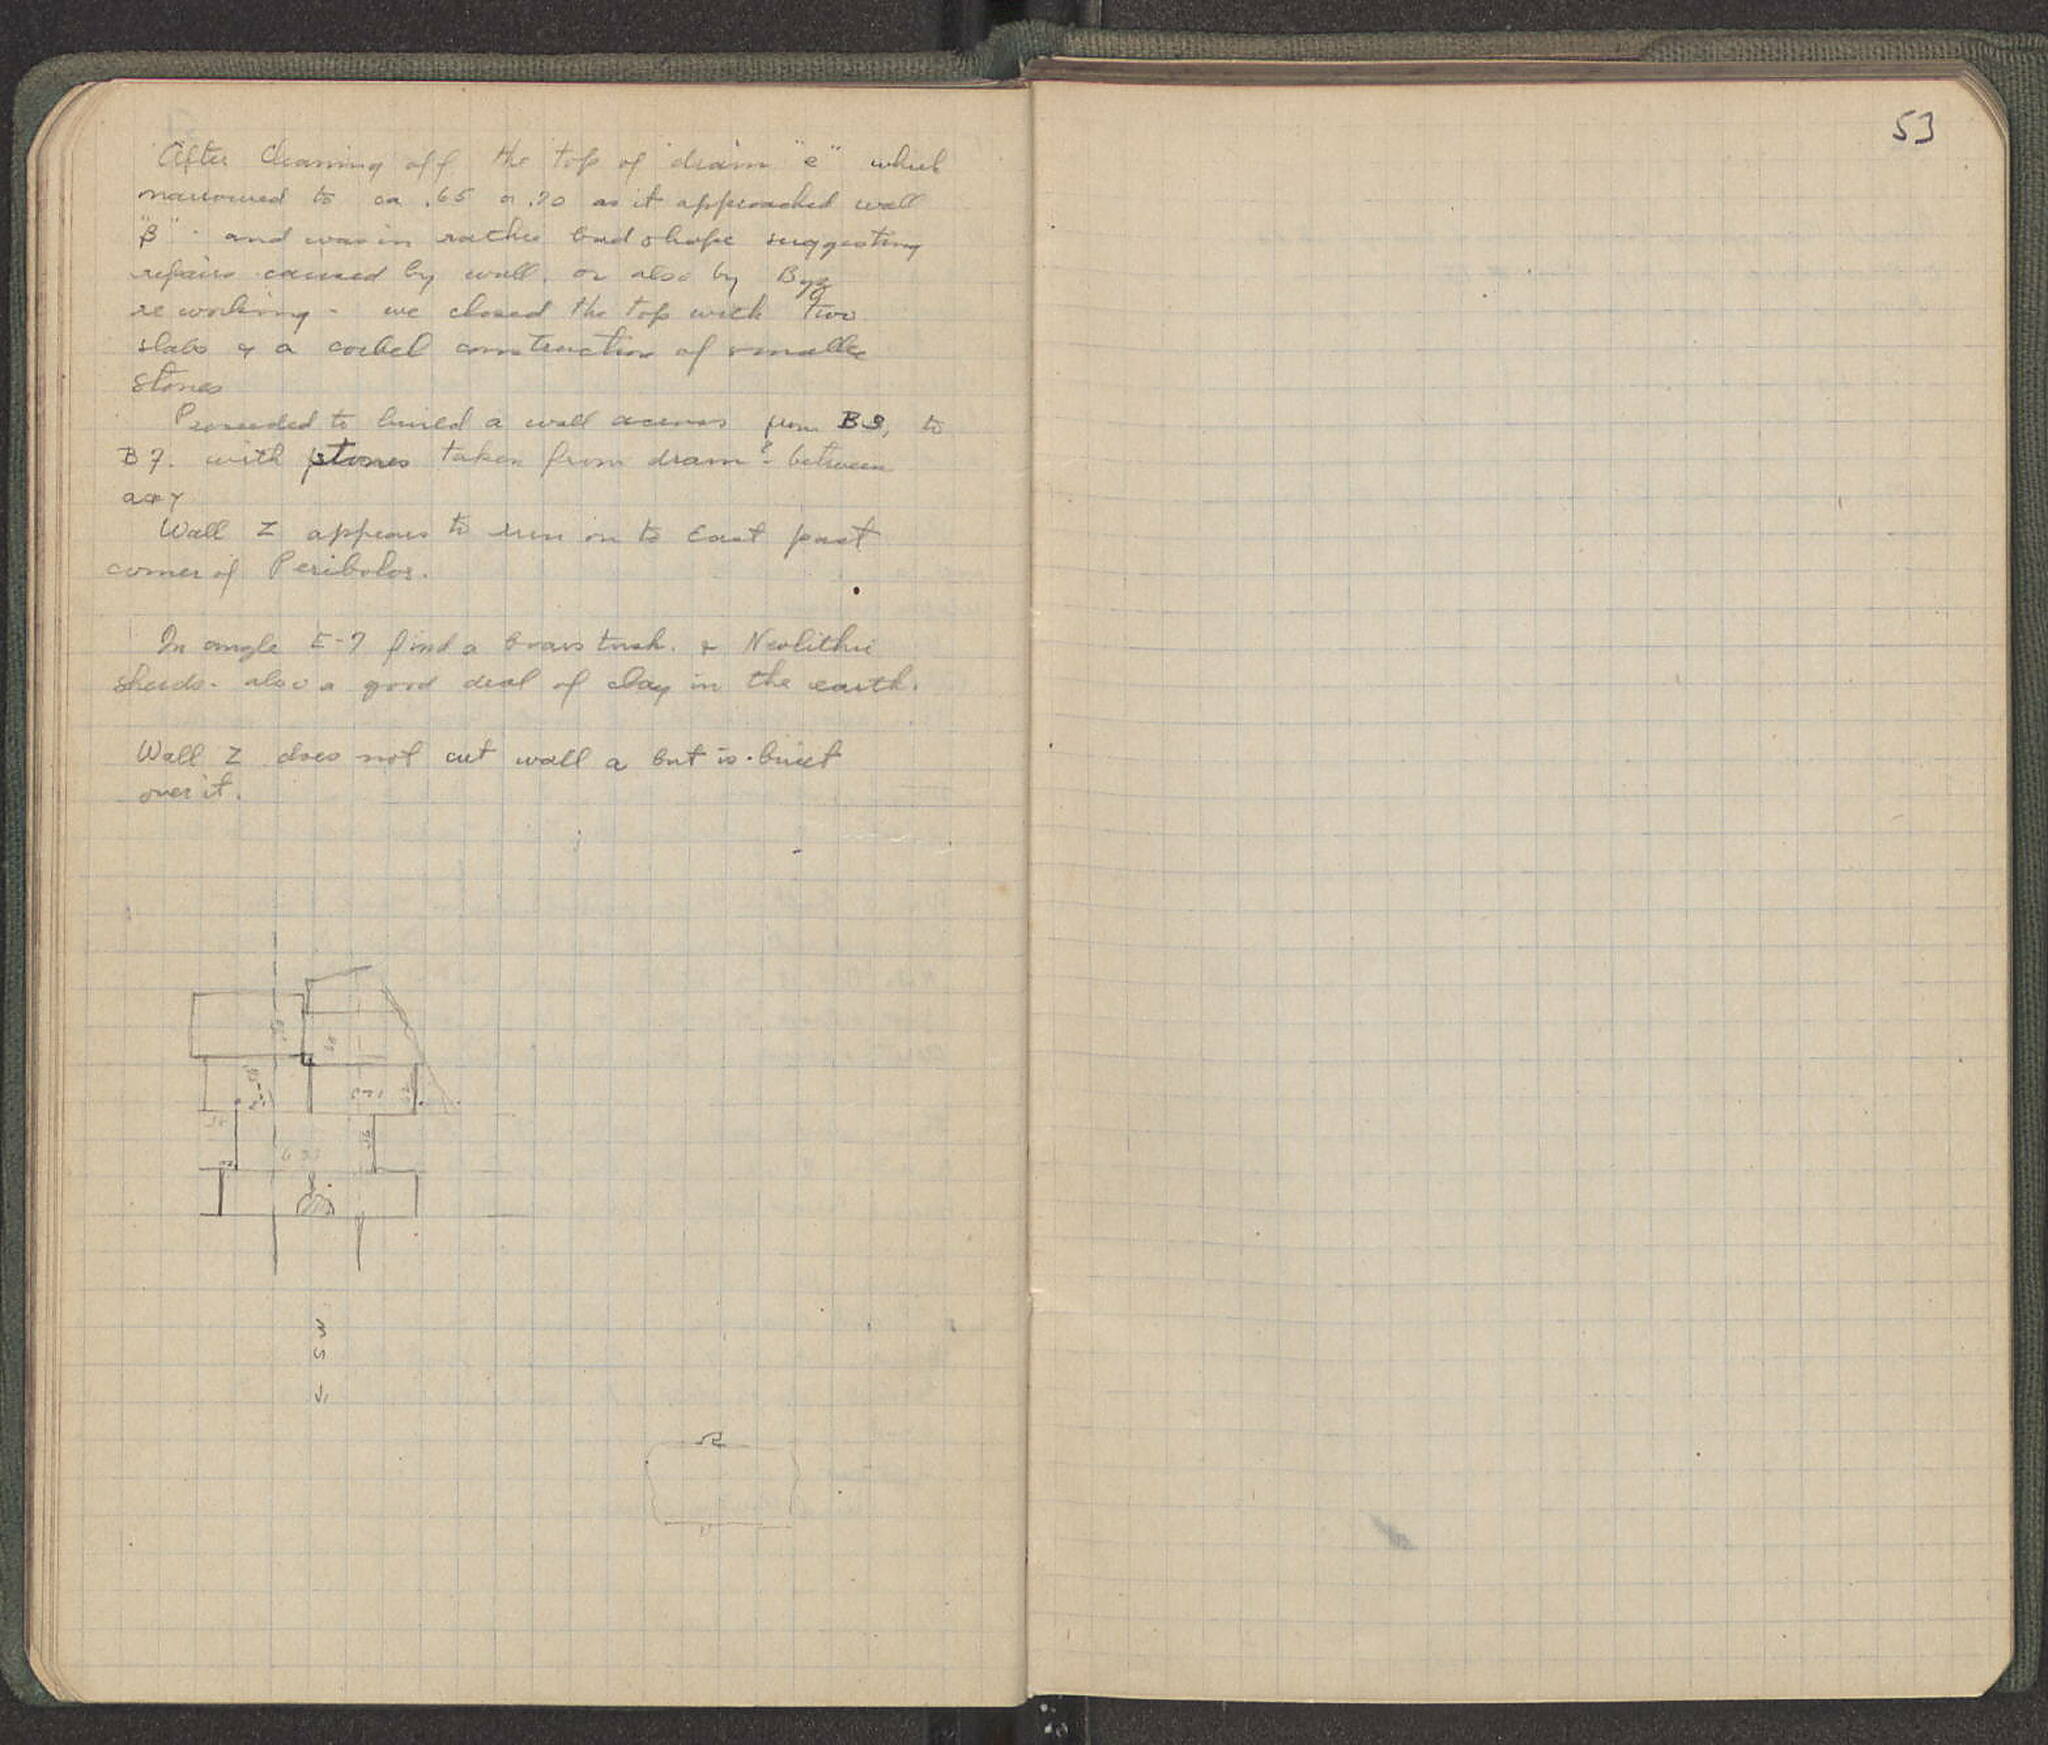 After cleaning off the top of drain "e" which
narrowed to ca .65 or .70 as it approached wall
"β" - and was in rather bad shape suggesting
repairs caused by wall, or also by Byz
reworking - we closed the top with two
slabs & a corbel construction of smaller
stones
Proceeded to build a wall across from B to
B 7. with stones taken from drain between
Wall Z appears to run on to East past
corner of Peribolos.
In angle E-7 find a boars tusk. & Neolithic
sherds - also a good deal of clay in the earth.
Wall Z does not cut wall a but is built
over it.
53